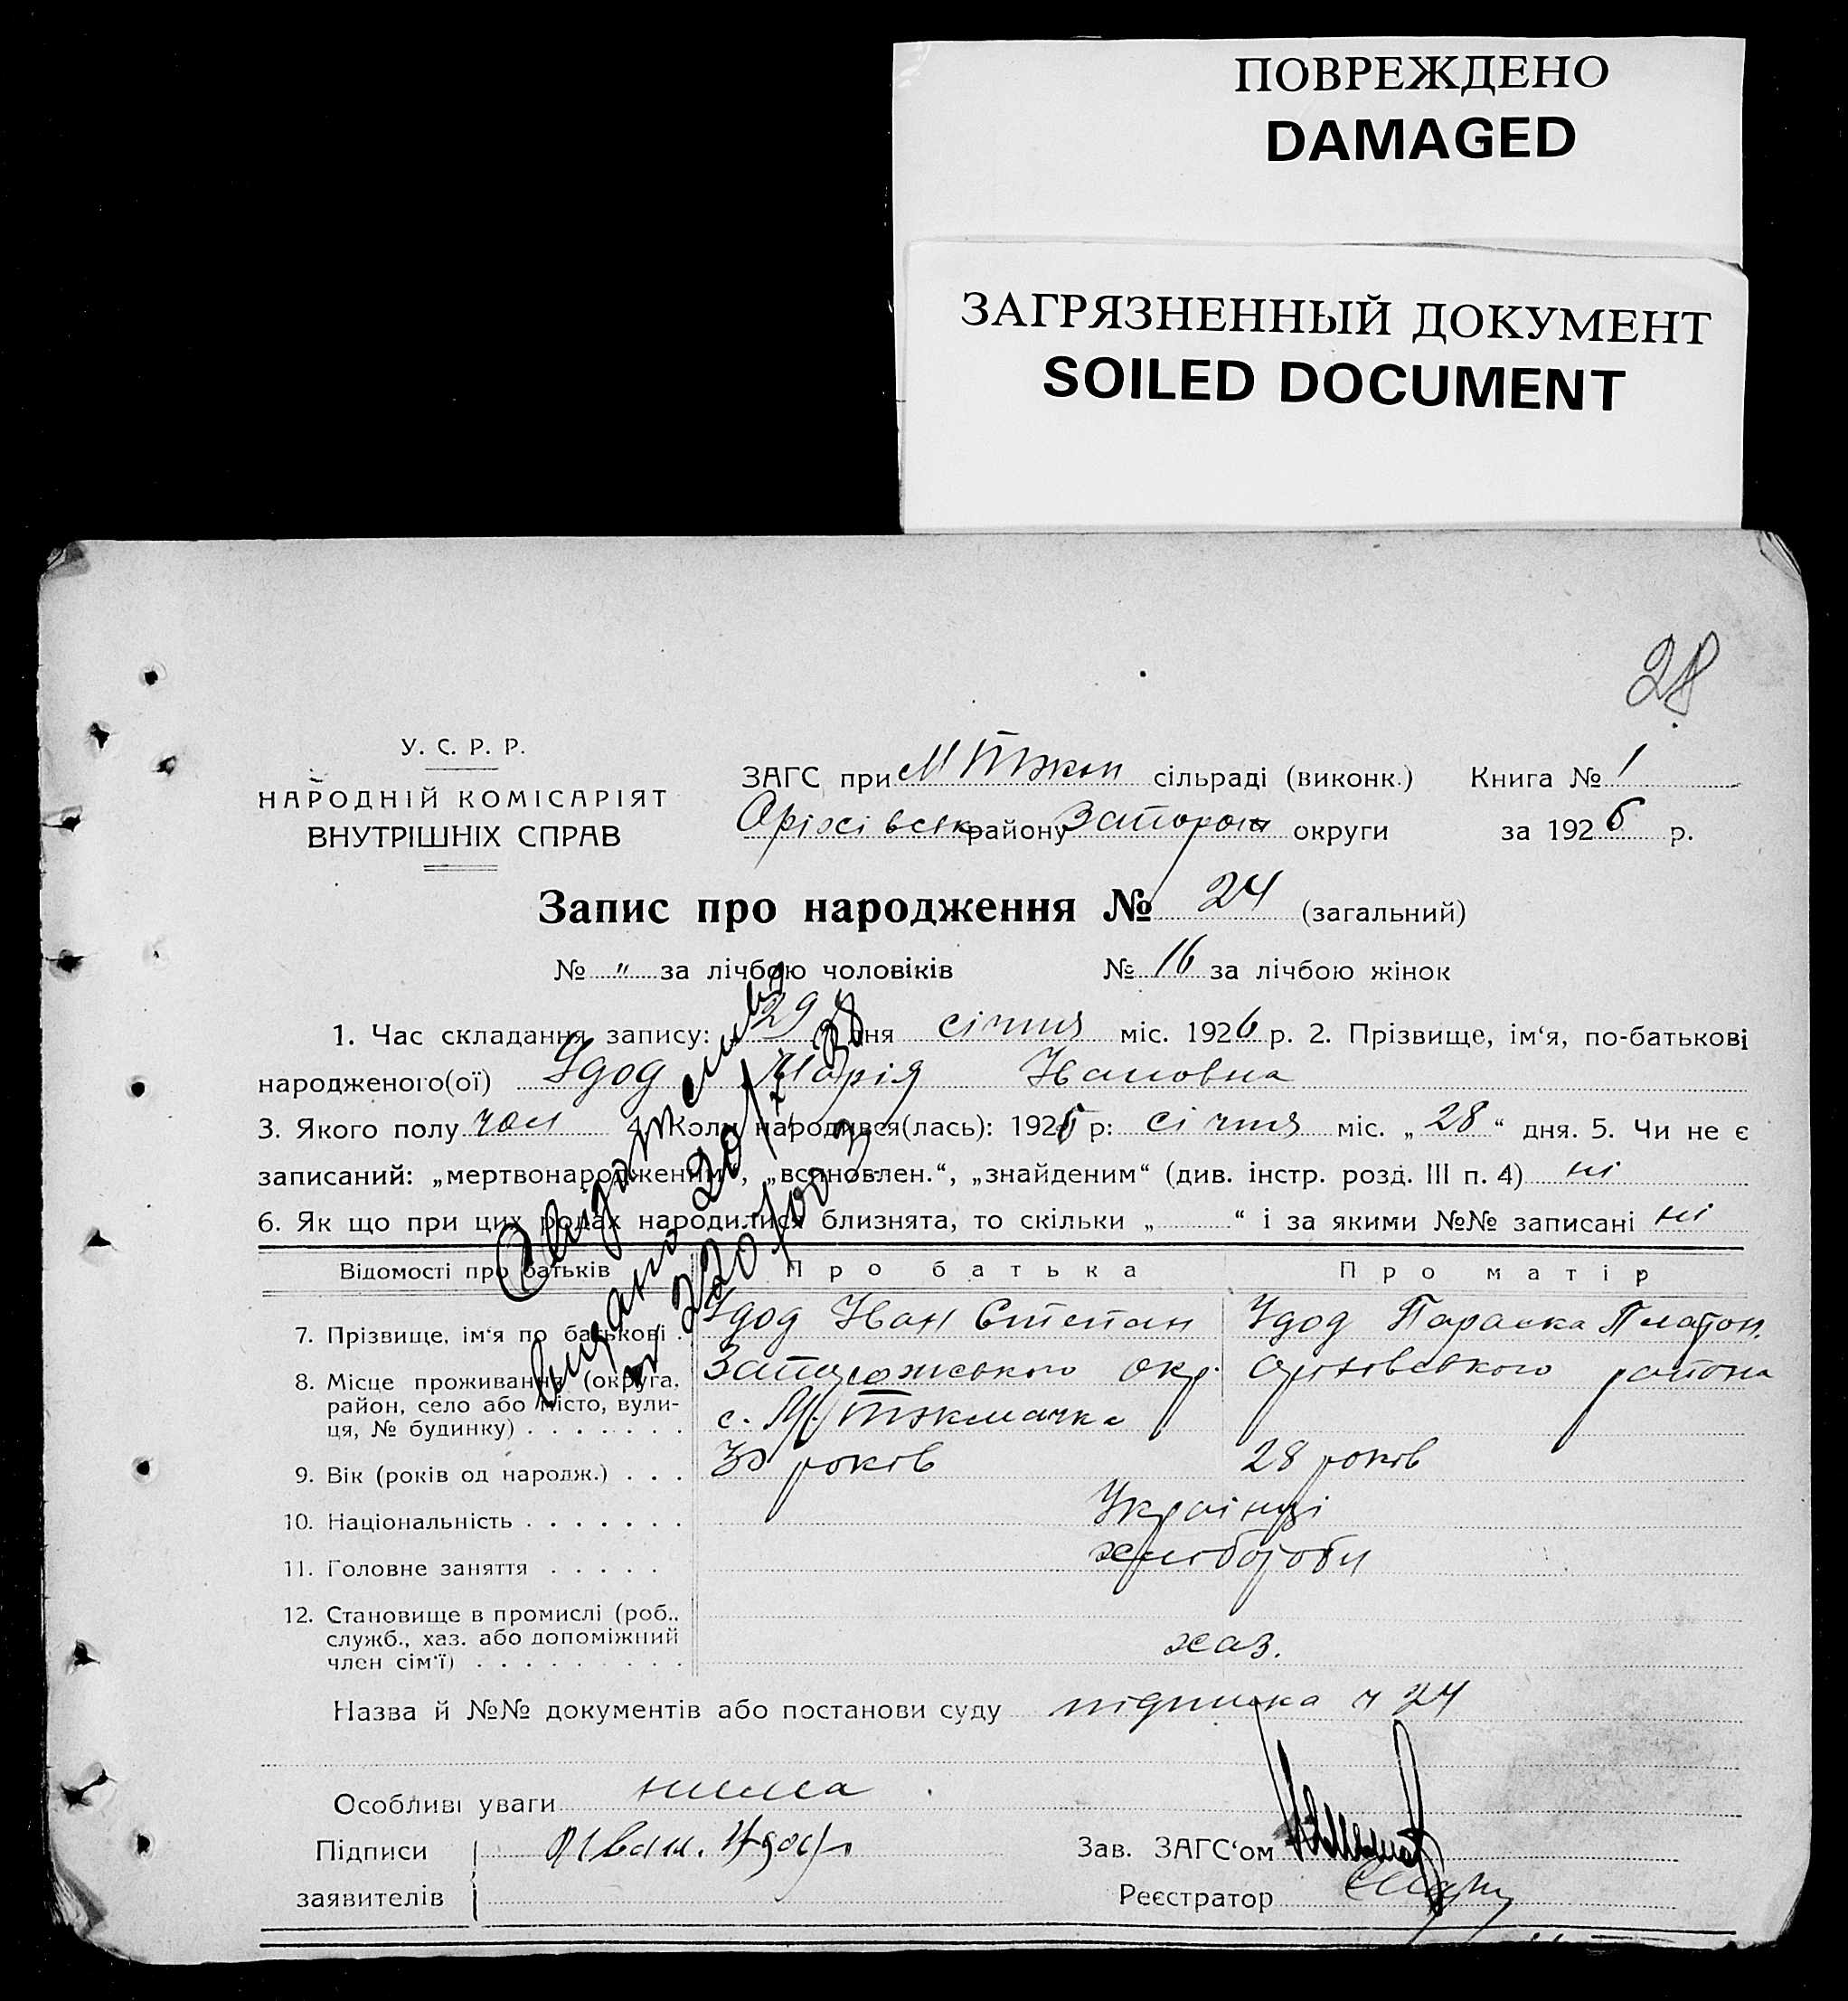 ПОВРЕЖДЕНО
DAMAGED
ЗАГРЯЗНЕННЫЙ ДОКУМЕНТ
SOILED DOCUMENT
28
У. С. Р. Р.
НАРОДНІЙ КОМІСАРІЯТ
ВНУТРІШНІХ СПРАВ
ЗАГС при М Токм сільраді (виконк.) Книга № 1
Оріхівськ району Запорож округи за 1926 р.
Запис про народження № 24 (загальний)
№ " за лічбою чоловіків № 16 за лічбою жінок
1. Час складання запису: 29 дня січня міс. 1926 р. 2. Прізвище, ім'я, по-батькові
народженого(ої) Удод Марія Івановна
3. Якого полу жен 4. Коли народився(лась): 1926 р: січня міс. „28" дня. 5. Чи не є
записаний: „мертвонародженим", „всиновлен.", „знайденим" (див. інстр. розд. III п. 4) ні
6. Як що при цих родах народилися близнята, то скільки „ " і за якими №№ записані ні
Свідоцтво
видано 20
№ 220
Відомості про батьків Про батька Про матір
7. Прізвище, ім'я по батькові . Удод Іван Степан Удод Параска Платон.
8. Місце проживання (округа, Запорожського окр. Оріховського района
район, село або місто, вули-
ця, № будинку) . . . . . . . с. М. Токмачка
9. Вік (років од народж.) . . . 30 років 28 років
10. Національність . . . . . . . Українці
11. Головне заняття . . . . . хлібороби
12. Становище в промислі (роб.,
служб., хаз. або допоміжний
член сім'ї) . . . . . . . . . хаз.
Назва й №№ документів або постанови суду підписка ч 24
Особливі уваги нима
Підписи Иван. Удод
заявителів
Зав. ЗАГС'ом
Реєстратор